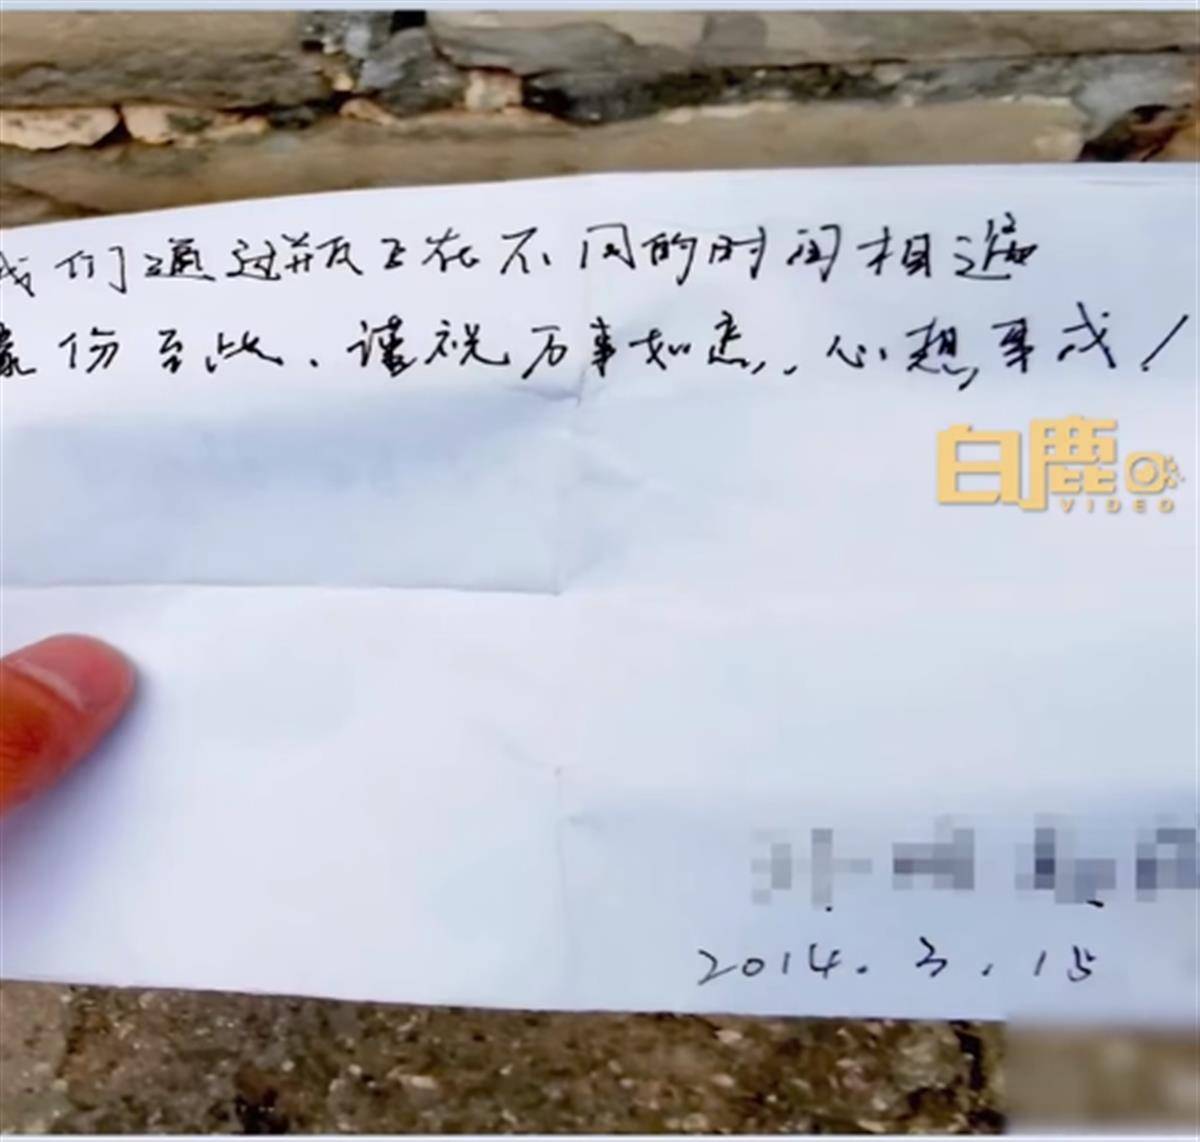 我们通过瓶子在不同的时间相遇
缘份至此、谨祝万事如意,心想事成!
白鹿
VIDEO
2014.3.15